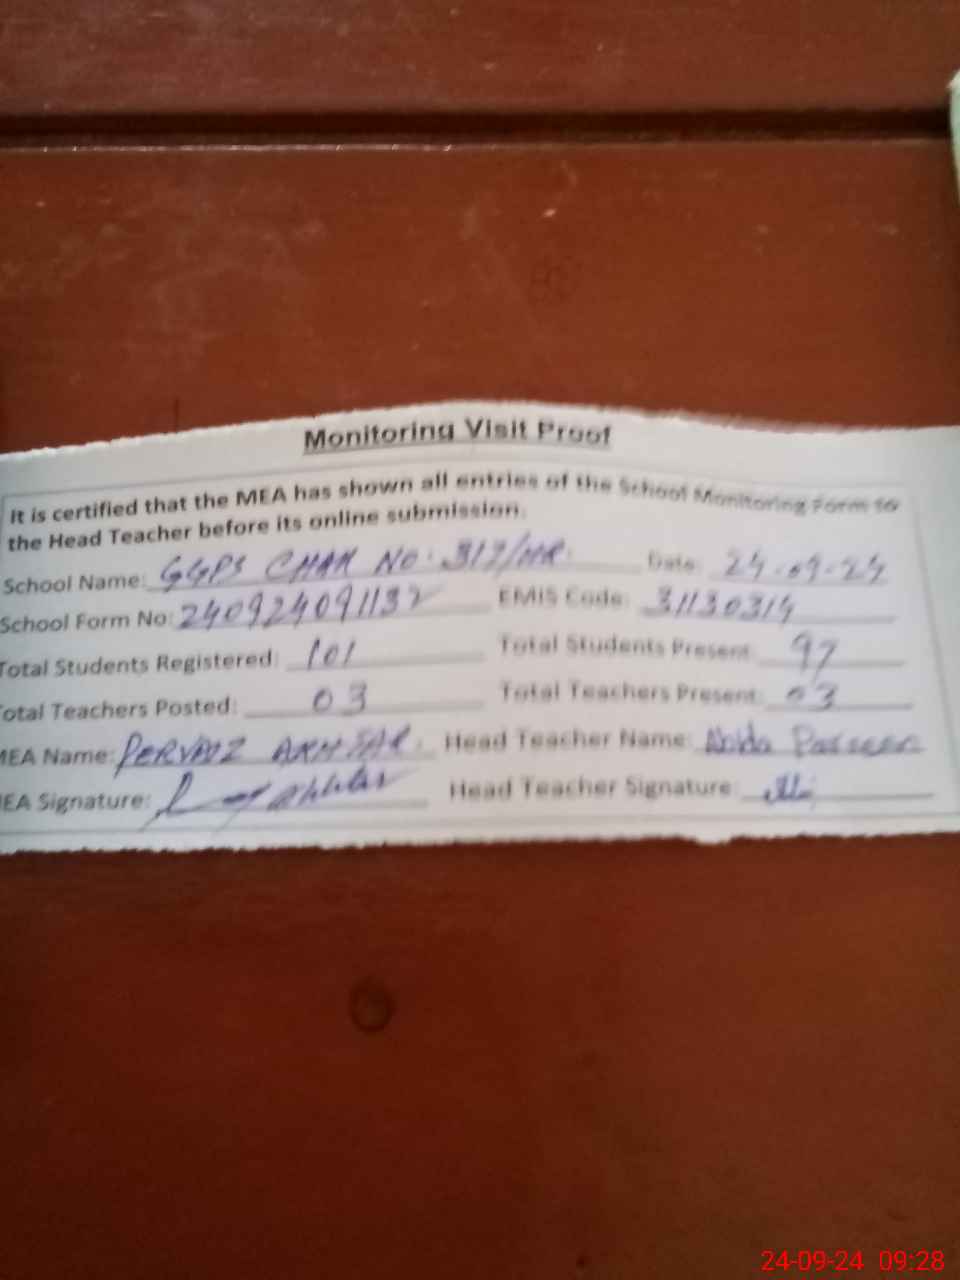 Monitoring Visit Proof
It is certified that the MEA has shown all entries of the School Monitoring Form to
the Head Teacher before its online submission.
School Name: GGPS CHAK NO. 317/HR. Date: 24-09-24
School Form No: 240924091132 EMIS Code: 31130314
Total Students Registered: 101 Total Students Present: 97
Total Teachers Posted: 03 Total Teachers Present: 03
MEA Name: PERVAIZ Head Teacher Name:
MEA Signature: Head Teacher Signature:
24-09-24 09:28